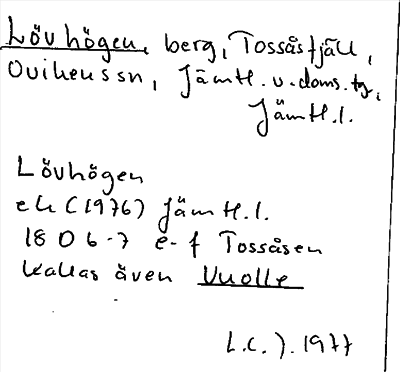 Lövhögen, berg, Tossåsfjäll,
Ovikens sn, Jämtl. v. doms. tg,
Jämtl. l.
Lövhögen
ek (1976) Jämtl. l.
18 D 6-7 e-f Tossåsen
kallas även Vuolle
L.C.J. 1977